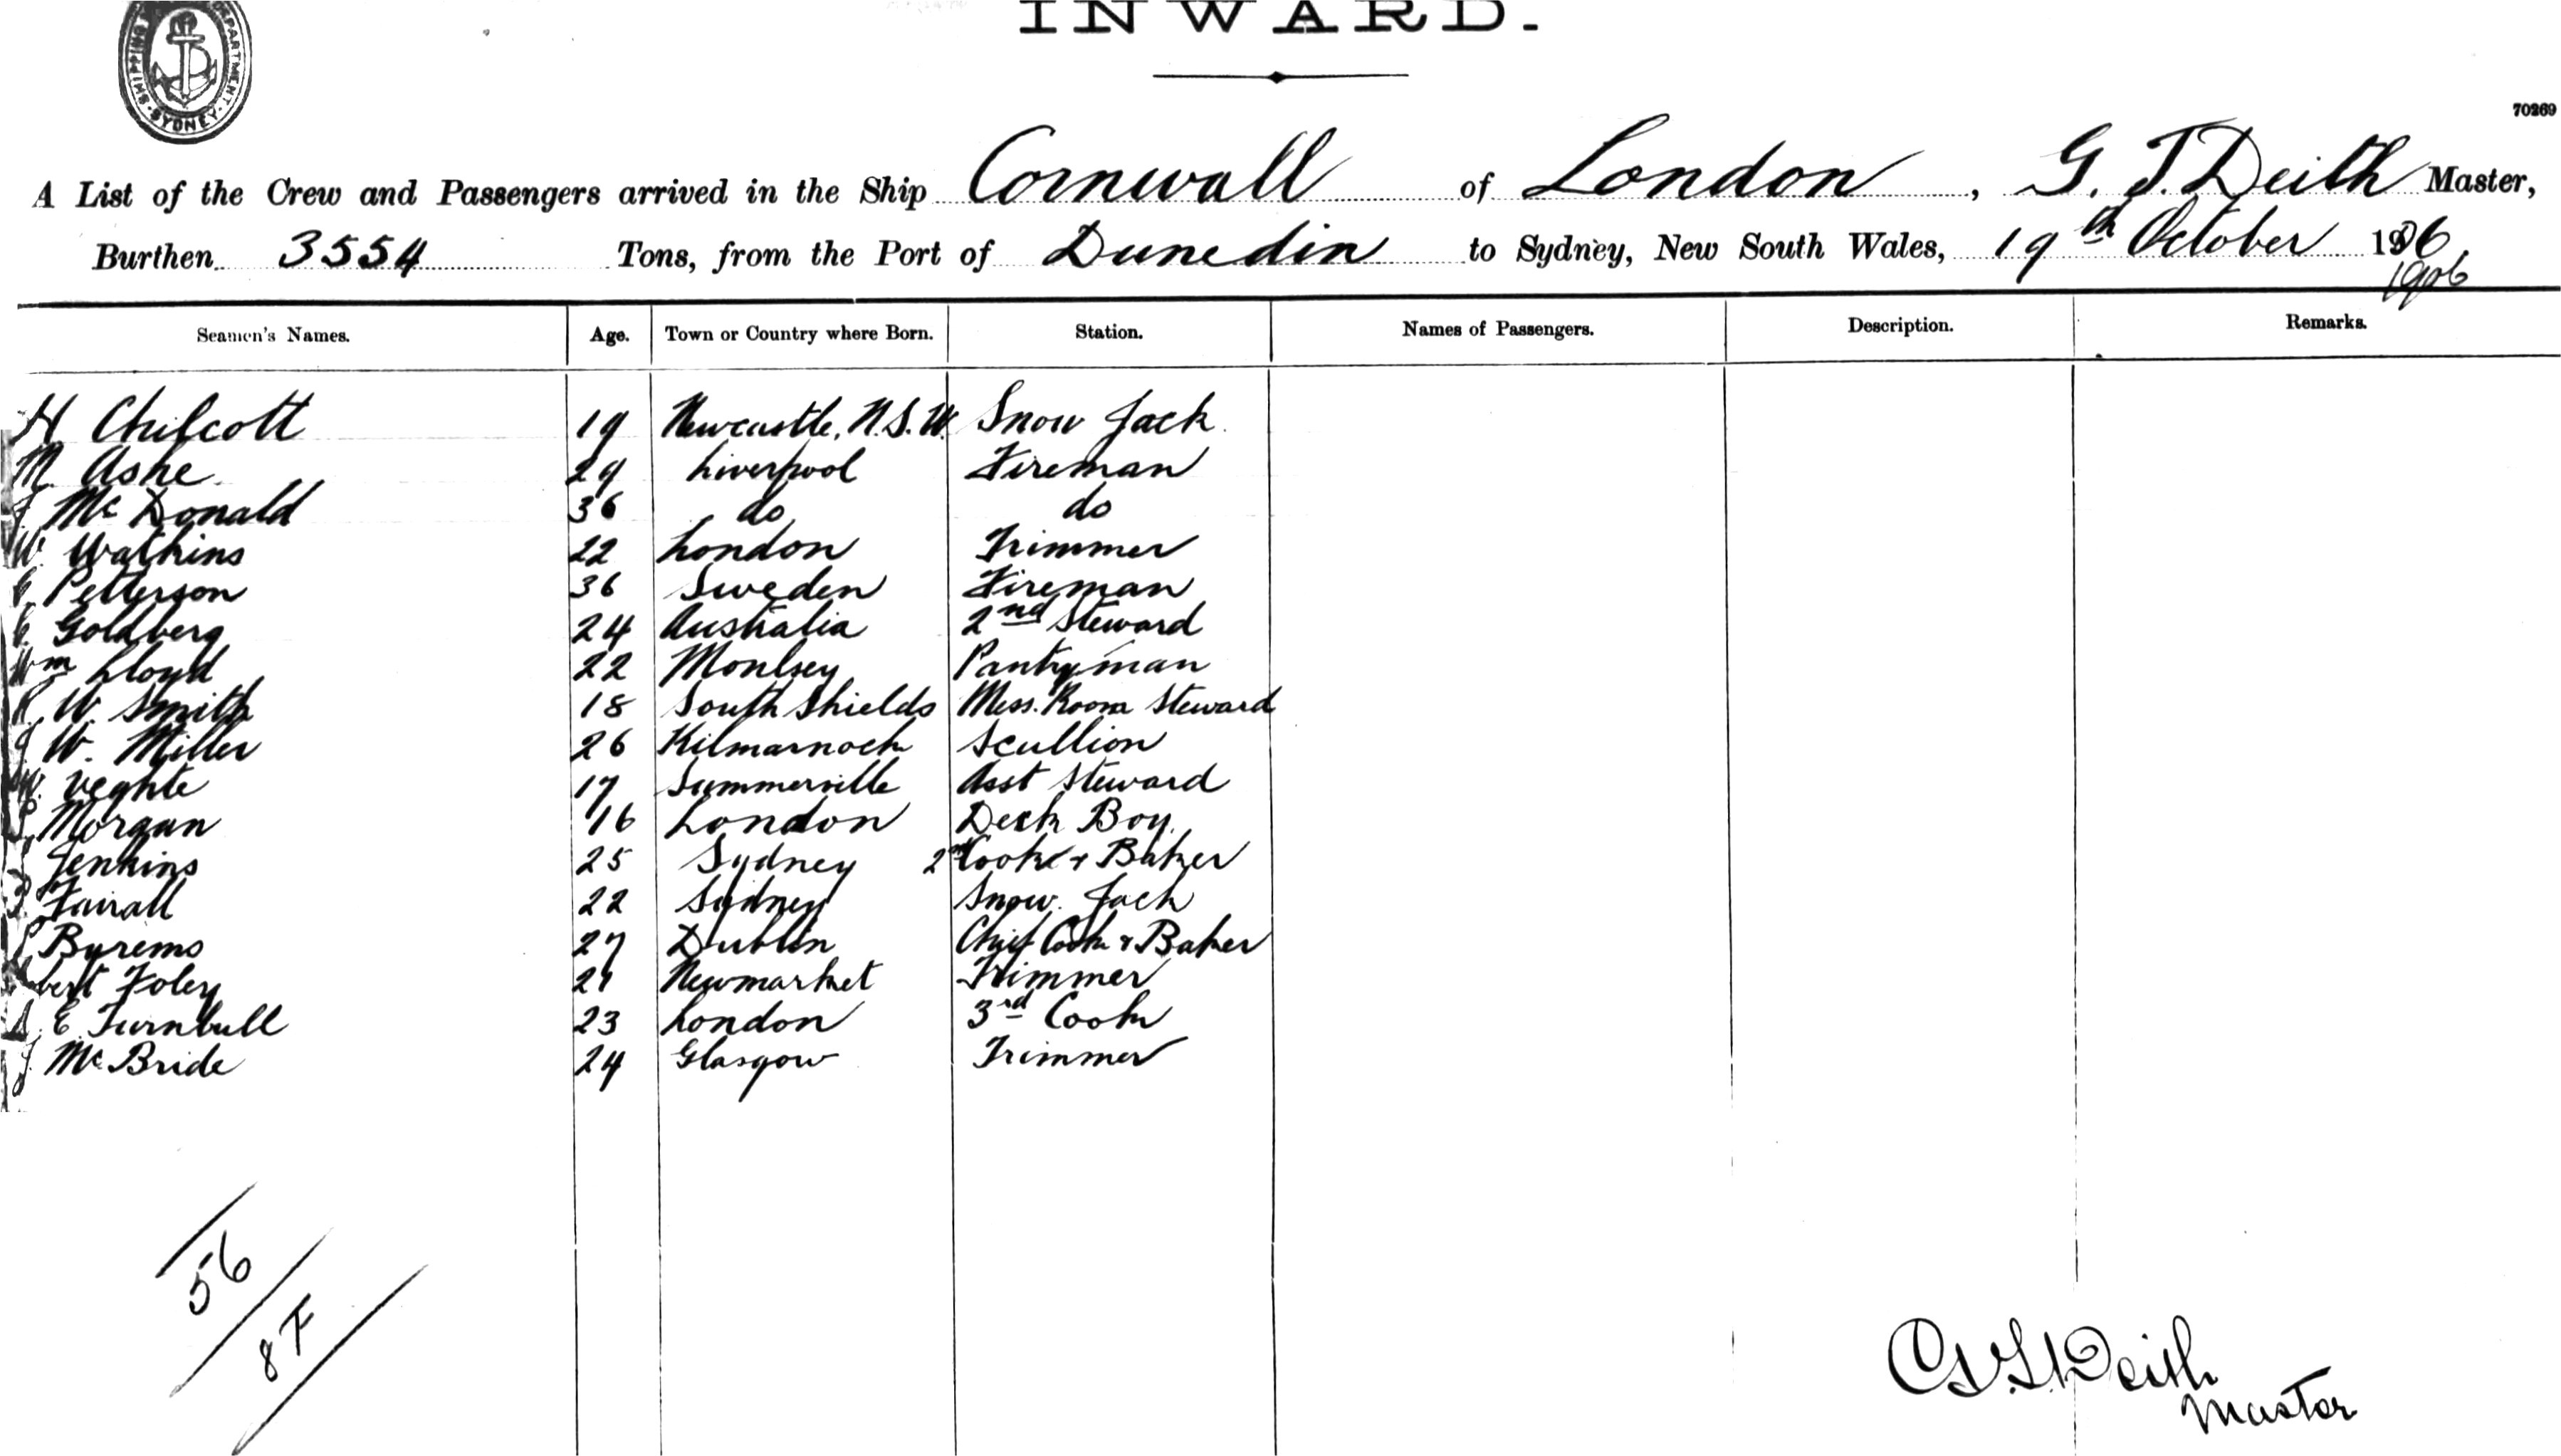 INWARD.
SHIPPING DEPARTMENT SYDNEY
70269
A List of the Crew and Passengers arrived in the Ship Cornwall of London, G. T. Deith Master,
Burthen 3554 Tons, from the Port of Dunedin to Sydney, New South Wales, 19th October 1906
1906
Seamen's Names. Age. Town or Country where Born. Station. Names of Passengers. Description. Remarks.
H Chilcott 19 Newcastle, N.S.W. Snow Jack
M Ashe 29 Liverpool Fireman
J Mc Donald 36 do do
W. Watkins 22 London Trimmer
Petterson 36 Sweden Fireman
Goldberg 24 Australia 2nd Steward
Wm Lloyd 22 Moulsey Pantryman
W. Smith 18 South Shields Mess. Room Steward
J W. Miller 26 Kilmarnock Scullion
W. Veghte 17 Summerville Asst Steward
Morgan 16 London Deck Boy
Jenkins 25 Sydney 2nd Cook & Baker
Fairall 22 Sydney Snow. Jack
Byrems 27 Dublin Chief Cook & Baker
Foley 21 Newmarket Trimmer
E Turnbull 23 London 3rd Cook
J. Mc Bride 24 Glasgow Trimmer
56
8 F
G. T. Deith
Master